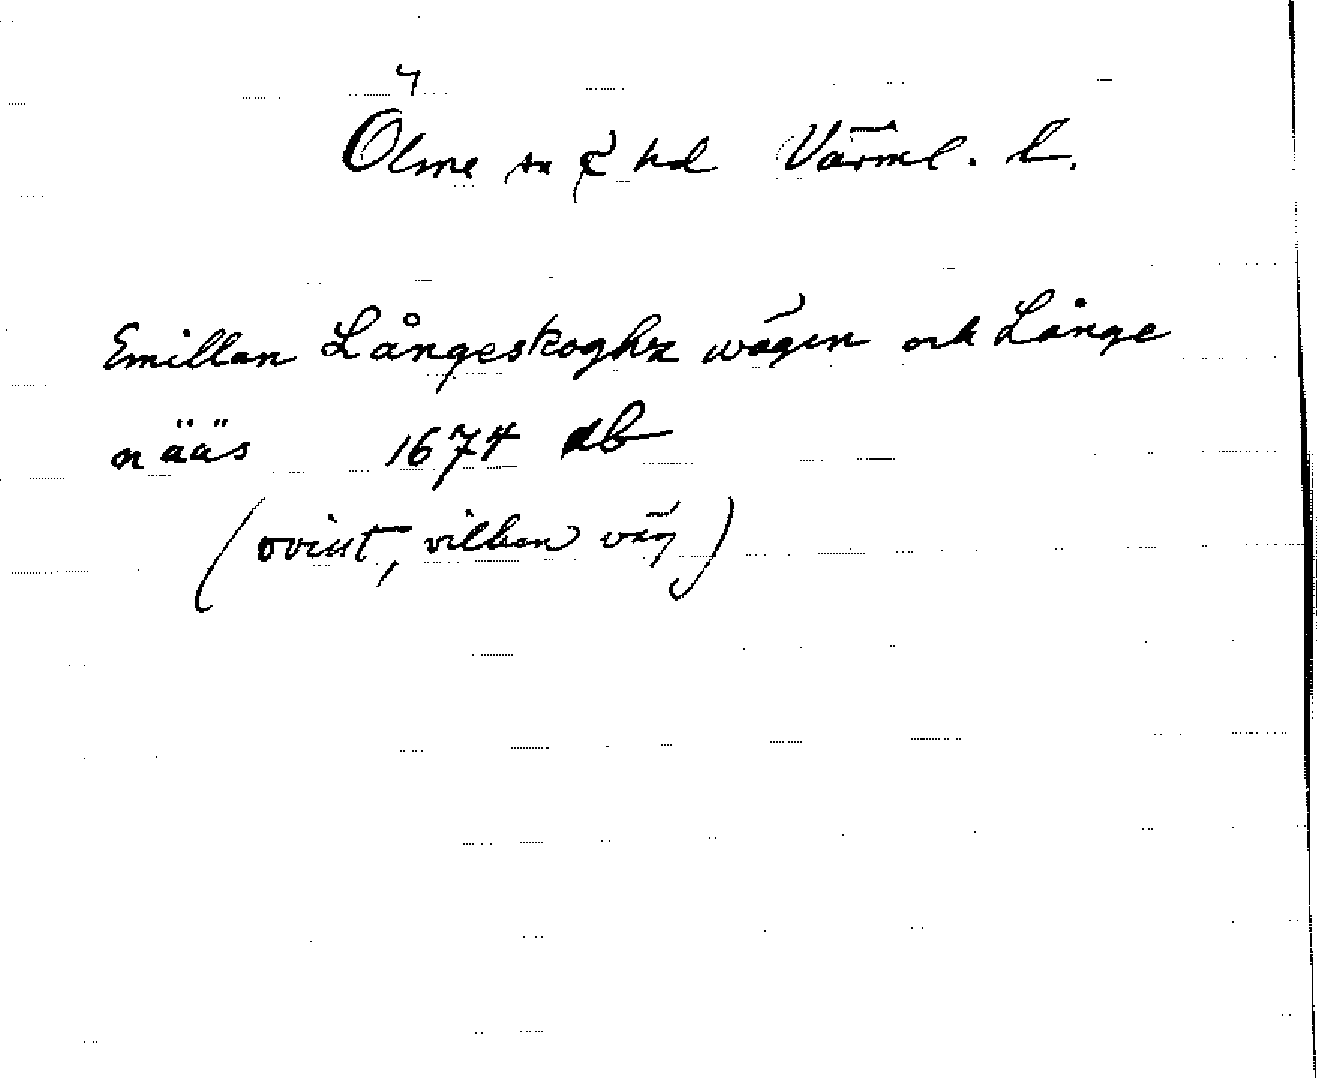 Ölme sn & hd Värml. l.
Emillan Långeskoghz wägen och Långe
nääs 1674 db
(ovisst, vilken väg)